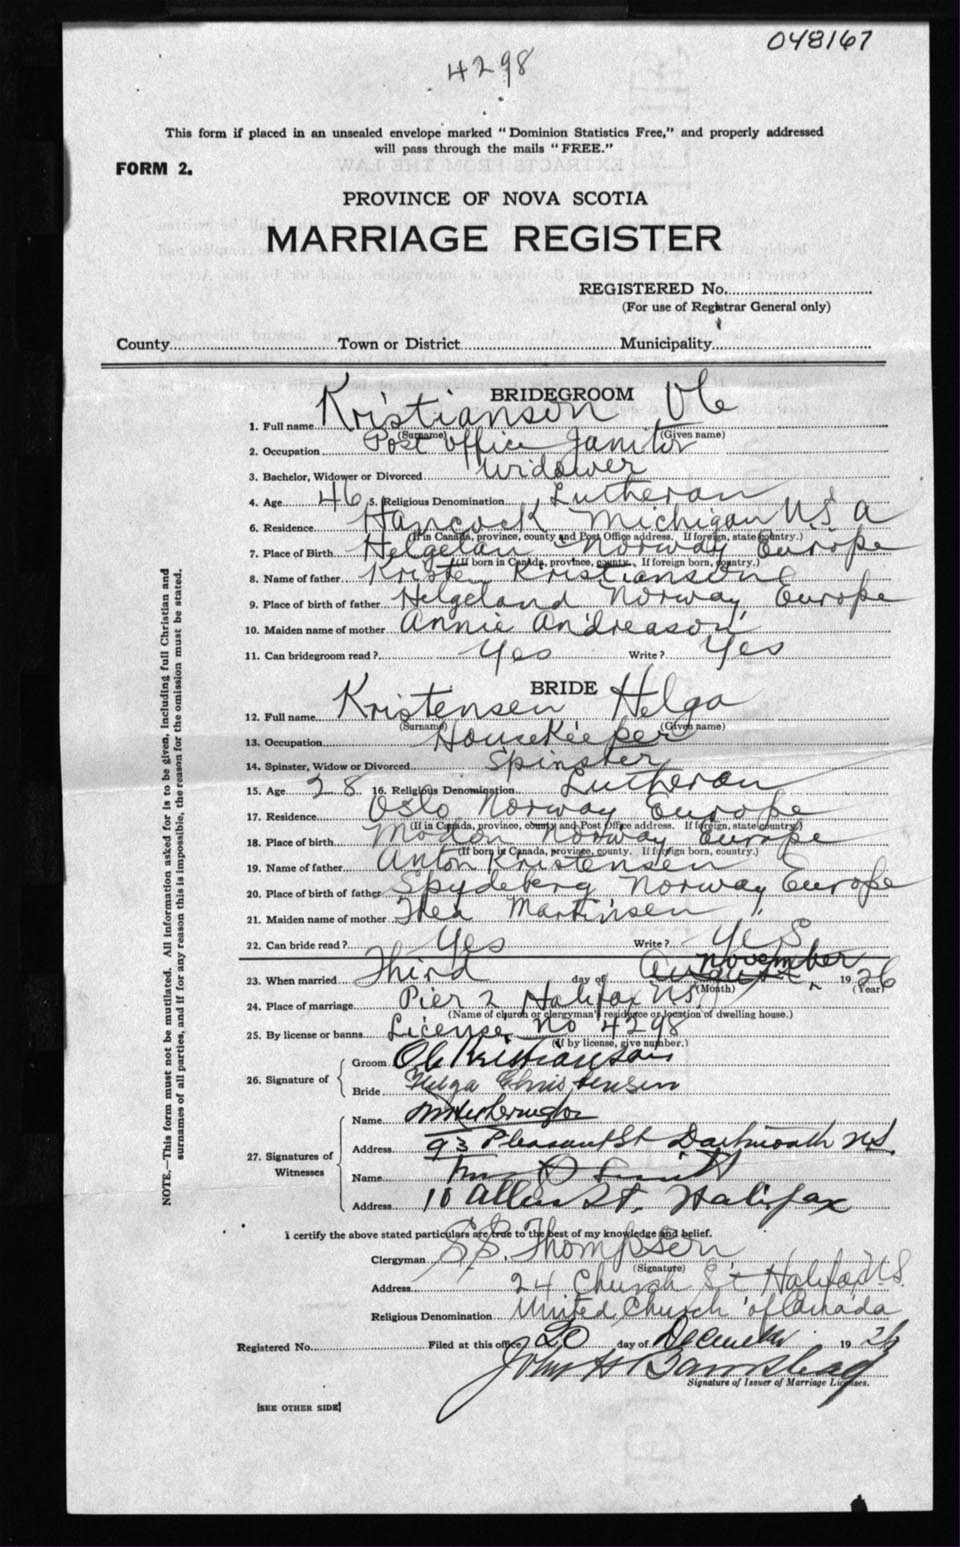 048167
4298
This form if placed in an unsealed envelope marked "Dominion Statistics Free," and properly addressed
will pass through the mails "FREE."
FORM 2.
PROVINCE OF NOVA SCOTIA
MARRIAGE REGISTER
REGISTERED No.
(For use of Registrar General only)
County Town or District Municipality
BRIDEGROOM
1. Full name Kristianson Ole
(Surname) (Given name)
2. Occupation Post Office Janitor
3. Bachelor, Widower or Divorced Widower
4. Age 46 5. Religious Denomination Lutheran
6. Residence Hancock Michigan U.S.A
(If in Canada, province, county and Post Office address. If foreign, state country.)
7. Place of Birth Helgelan Norway Europe
(If born in Canada, province, county. If foreign born, country.)
8. Name of father Kristianson
9. Place of birth of father Helgeland Norway, Europe
10. Maiden name of mother Annie Andreason
11. Can bridegroom read? Yes Write? Yes
BRIDE
12. Full name Kristensen Helga
(Surname) (Given name)
13. Occupation Housekeeper
14. Spinster, Widow or Divorced Spinster
15. Age 28 16. Religious Denomination Lutheran
17. Residence Oslo Norway Europe
(If in Canada, province, county and Post Office address. If foreign, state country.)
18. Place of birth Norway Europe
(If born in Canada, province, county. If foreign born, country.)
19. Name of father Anton Kristensen
20. Place of birth of father Spydeberg Norway Europe
21. Maiden name of mother Thea Martinsen
22. Can bride read? Yes Write? Yes
23. When married Third day of August November 1926
(Month) (Year)
24. Place of marriage Pier 2 Halifax NS
(Name of church or clergyman's residence or location of dwelling house.)
25. By license or banns License No 4298
(If by license, give number.)
26. Signature of
Groom Ole Kristianson
Bride Helga Christensen
27. Signatures of Witnesses
Name
Address 93 Pleasant St Dartmouth N.S.
Name
Address 10 Allen St. Halifax
I certify the above stated particulars are true to the best of my knowledge and belief.
Clergyman Thompson
(Signature)
Address 24 Church St Halifax, N.S.
Religious Denomination United Church of Canada
Registered No. Filed at this office 20 day of December 1926
John H
Signature of Issuer of Marriage Licenses.
[SEE OTHER SIDE]
NOTE.—This form must not be mutilated. All information asked for is to be given, including full Christian and
surnames of all parties, and if for any reason this is impossible, the reason for the omission must be stated.